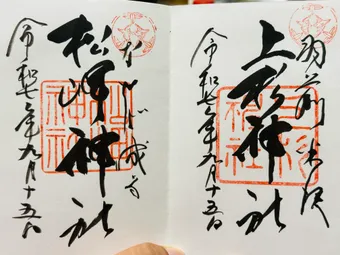 羽前米沢
上杉神社
令和七年九月十五日
なせば成る
松岬神社
令和七年九月十五日